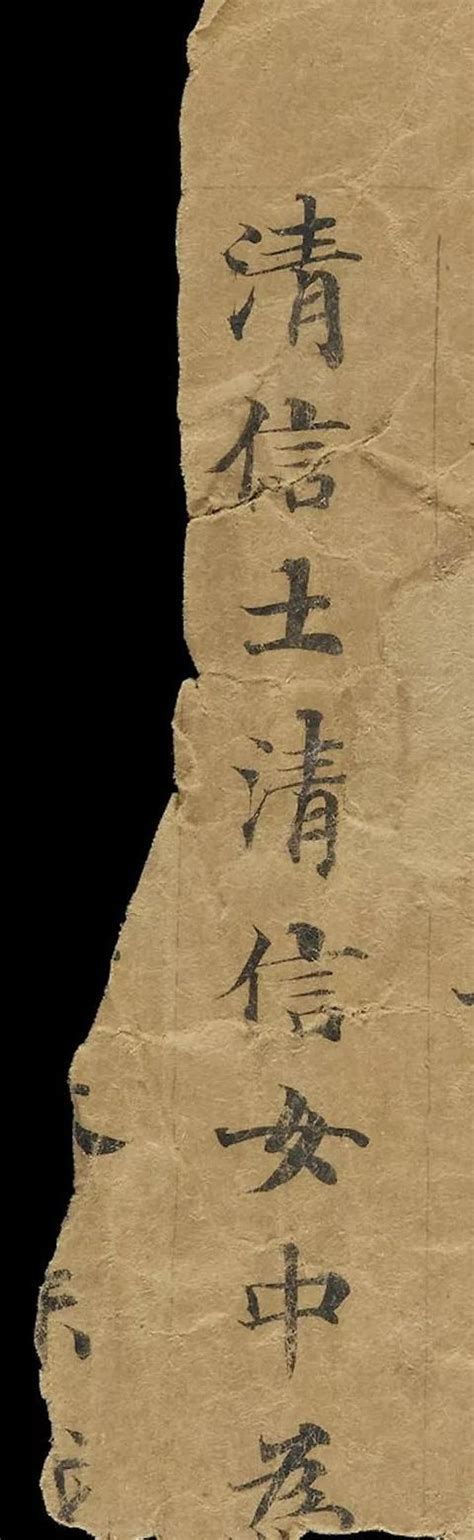 清信士清信女中為